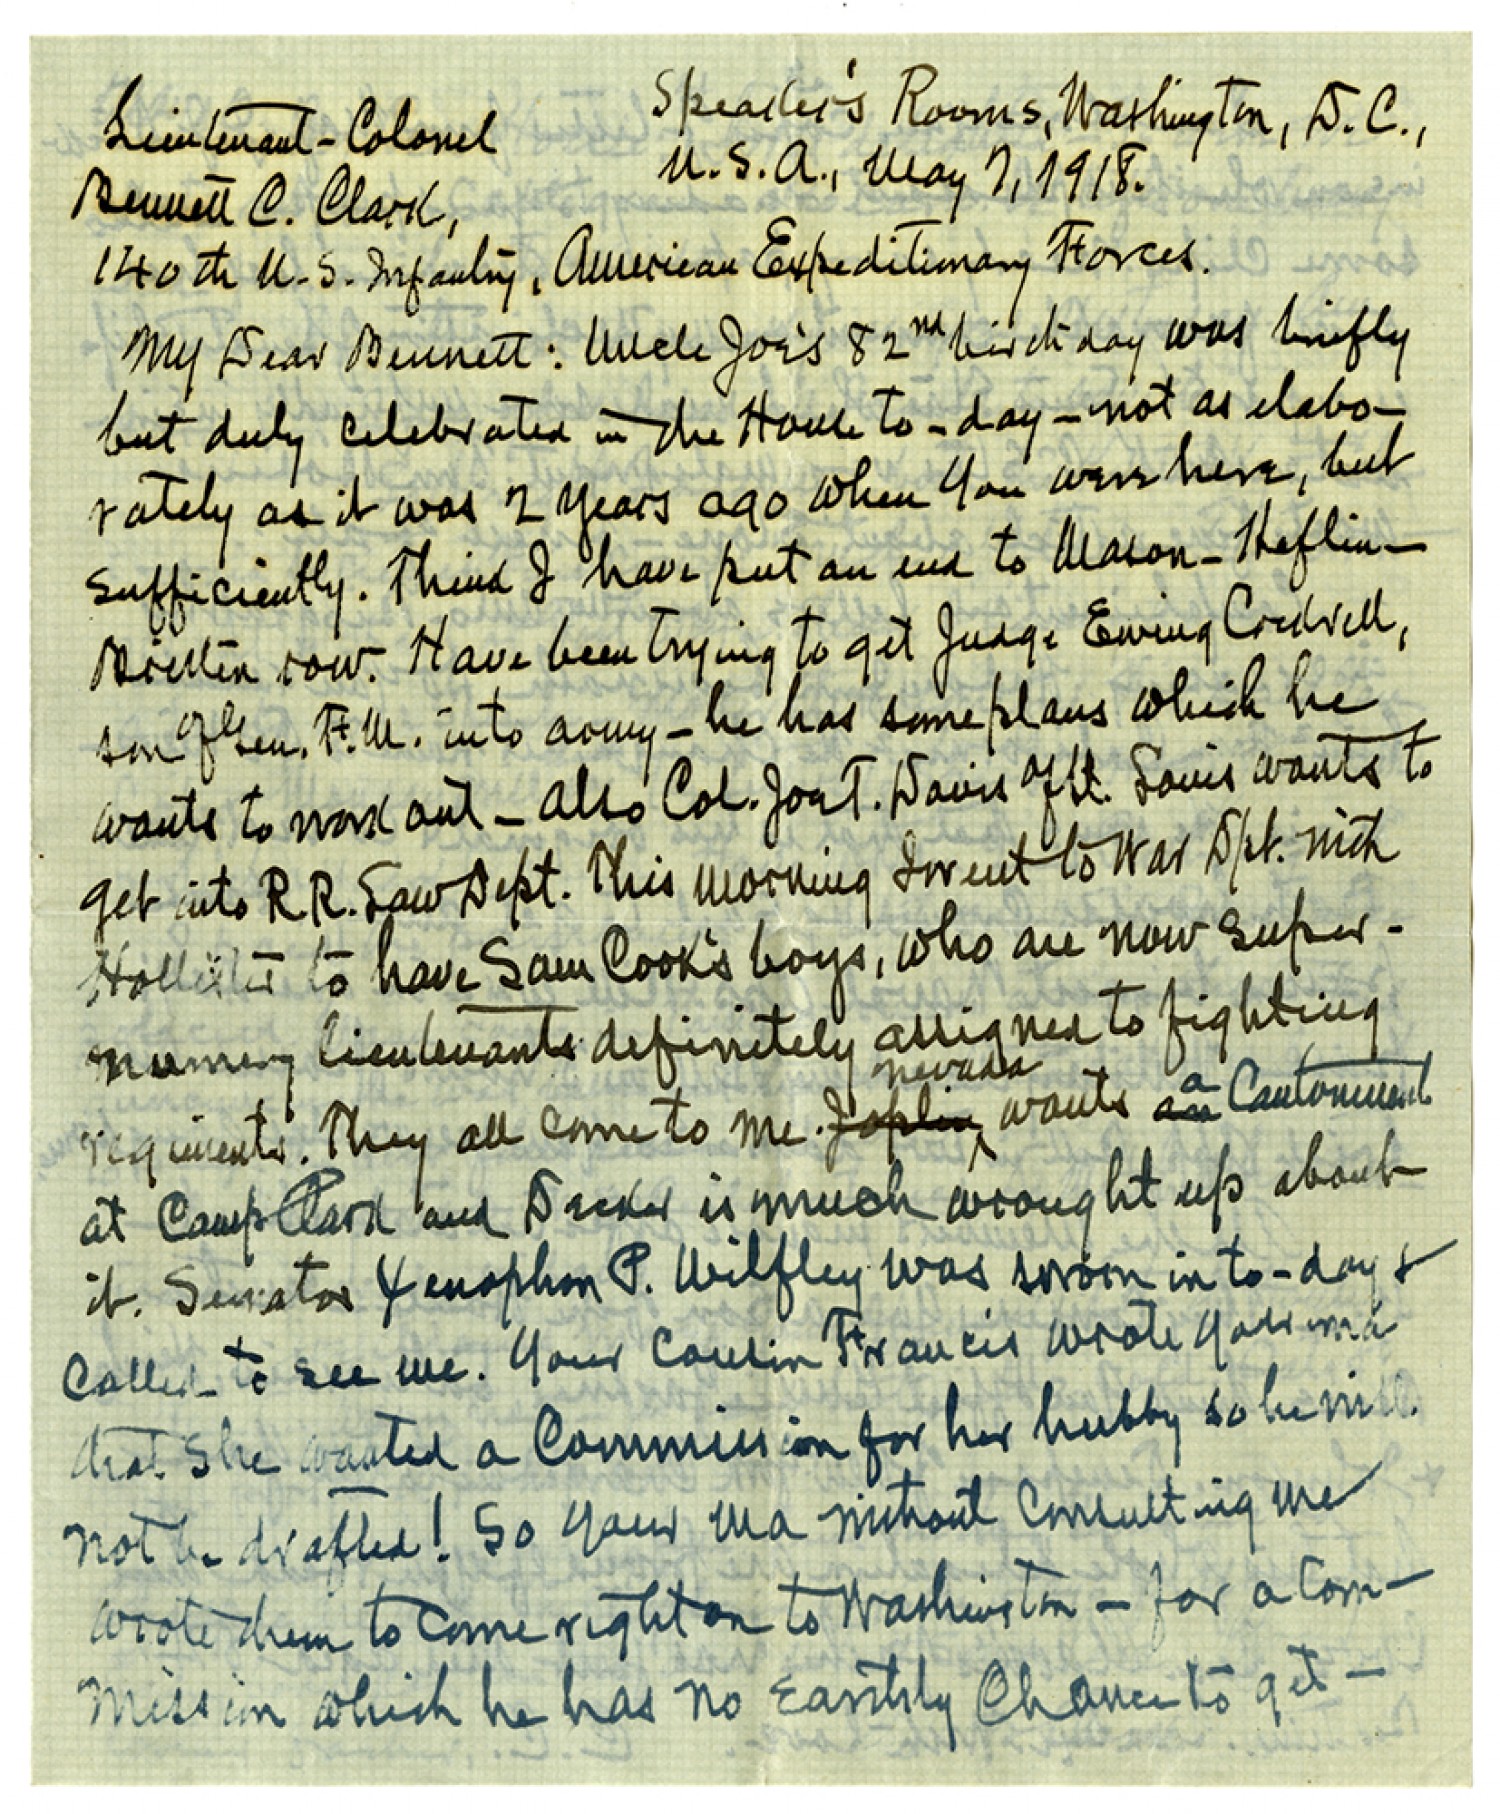 Speaker's Rooms, Washington, D.C.,
U.S.A., May 7, 1918.
Lieutenant-Colonel
Bennett C. Clark,
140th U.S. Infantry, American Expeditionary Forces.
My Dear Bennett: Uncle Joe's 82nd birthday was briefly
but duly celebrated in the House to-day - not as elabo-
rately as it was 2 years ago when you were here, but
sufficiently. Think I have put an end to Mason-Heflin-
Britten row. Have been trying to get Judge Ewing Cockrell,
son of Gen. F.M. into army - he has some plans which he
wants to work out - also Col. Joe T. Davis of St. Louis wants to
get into R.R. Law Dept. This morning I went to War Dpt. with
Hollister to have Sam Cook's boys, who are now super-
numery lieutenants definitely assigned to fighting
regiments. They all come to me. Joplin nevada wants an a Cantonment
at Camp Clark and Decker is much wrought up about
it. Senator Xenophon P. Wilfley was sworn in to-day &
called to see me. Your Cousin Francis wrote your ma
that she wanted a Commission for her hubby so he will
not be drafted! So your ma without consulting me
wrote them to come right on to Washington - for a Com-
mission which he has no earthly Chance to get -